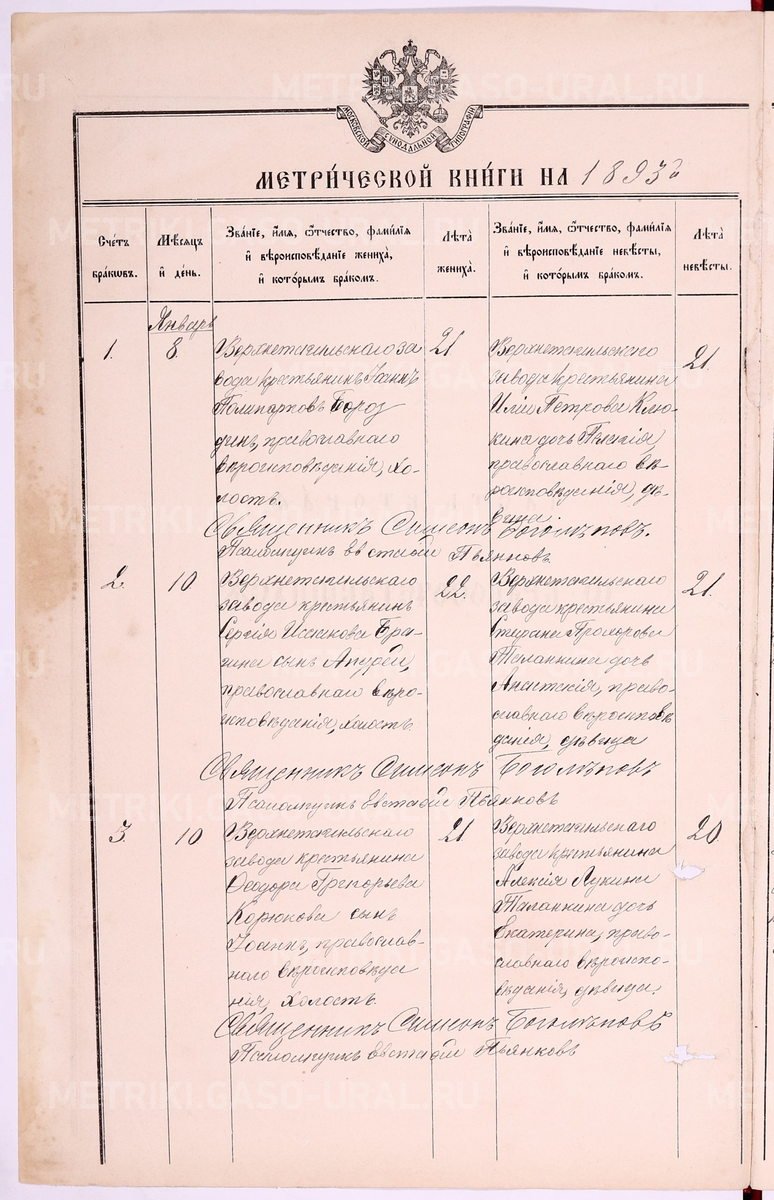 МОСКОВСКОЙ СѴНОДАЛЬНОЙ ТИПОГРАФІИ
МЕТРИ́ЧЕСКОЙ КНИ́ГИ НА 1893 й
Счетъ бра́кивъ.
Мѣсяцъ и҆ де́нь.
Зва́нїе, и҆́мя, ѻ҆́тчество, фами́лїя и҆ вѣроисповѣ́данїе жениха̀, и҆ кото́рымъ бра́комъ.
Лѣ́та жениха̀.
Зва́нїе, и҆́мя, ѻ҆́тчество, фами́лїя и҆ вѣроисповѣ́данїе невѣ́сты, и҆ кото́рымъ бра́комъ.
Лѣ́та невѣ́сты.
Январь
1.
8
Верхнетагильскаго за
вода крестьянинъ Іоаннъ
Поликарповъ Бороз
динъ, православнаго
вѣроисповѣданія, хо-
лостъ.
21
Верхнетагильскаго
завода крестьянина
Иліи Петрова Клю-
кина дочь Пелагія,
православнаго вѣ-
роисповѣданія, дѣ-
вица.
21.
Священникъ Симеонъ Боголѣповъ.
Псаломщикъ Евстафій Пьянковъ
2.
10
Верхнетагильскаго
завода крестьянина
Сергія Исаакова Бра-
гина сынъ Андрей,
православнаго вѣро-
исповѣданія, холостъ
22.
Верхнетагильскаго
завода крестьянина
Стефана Прохорова
Таланкина дочь
православнаго вѣроисповѣ
данія, дѣвица
21.
Священникъ Симеонъ Боголѣповъ
Псаломщикъ Евстафій Пьянковъ
3.
10
Верхнетагильскаго
завода крестьянина
Ѳеодора Григорьева
Корюкова сынъ
Іоаннъ, православ-
наго вѣроисповѣда
нія, холостъ
21
Верхнетагильскаго
завода крестьянина
Алексія Лукина
Таланкина дочь
Екатерина, право-
славнаго вѣроиспо-
вѣданія, дѣвица.
20.
Священникъ Симеонъ Боголѣповъ
Псаломщикъ Евстафій Пьянковъ
METRIKI.GASO-URAL.RU